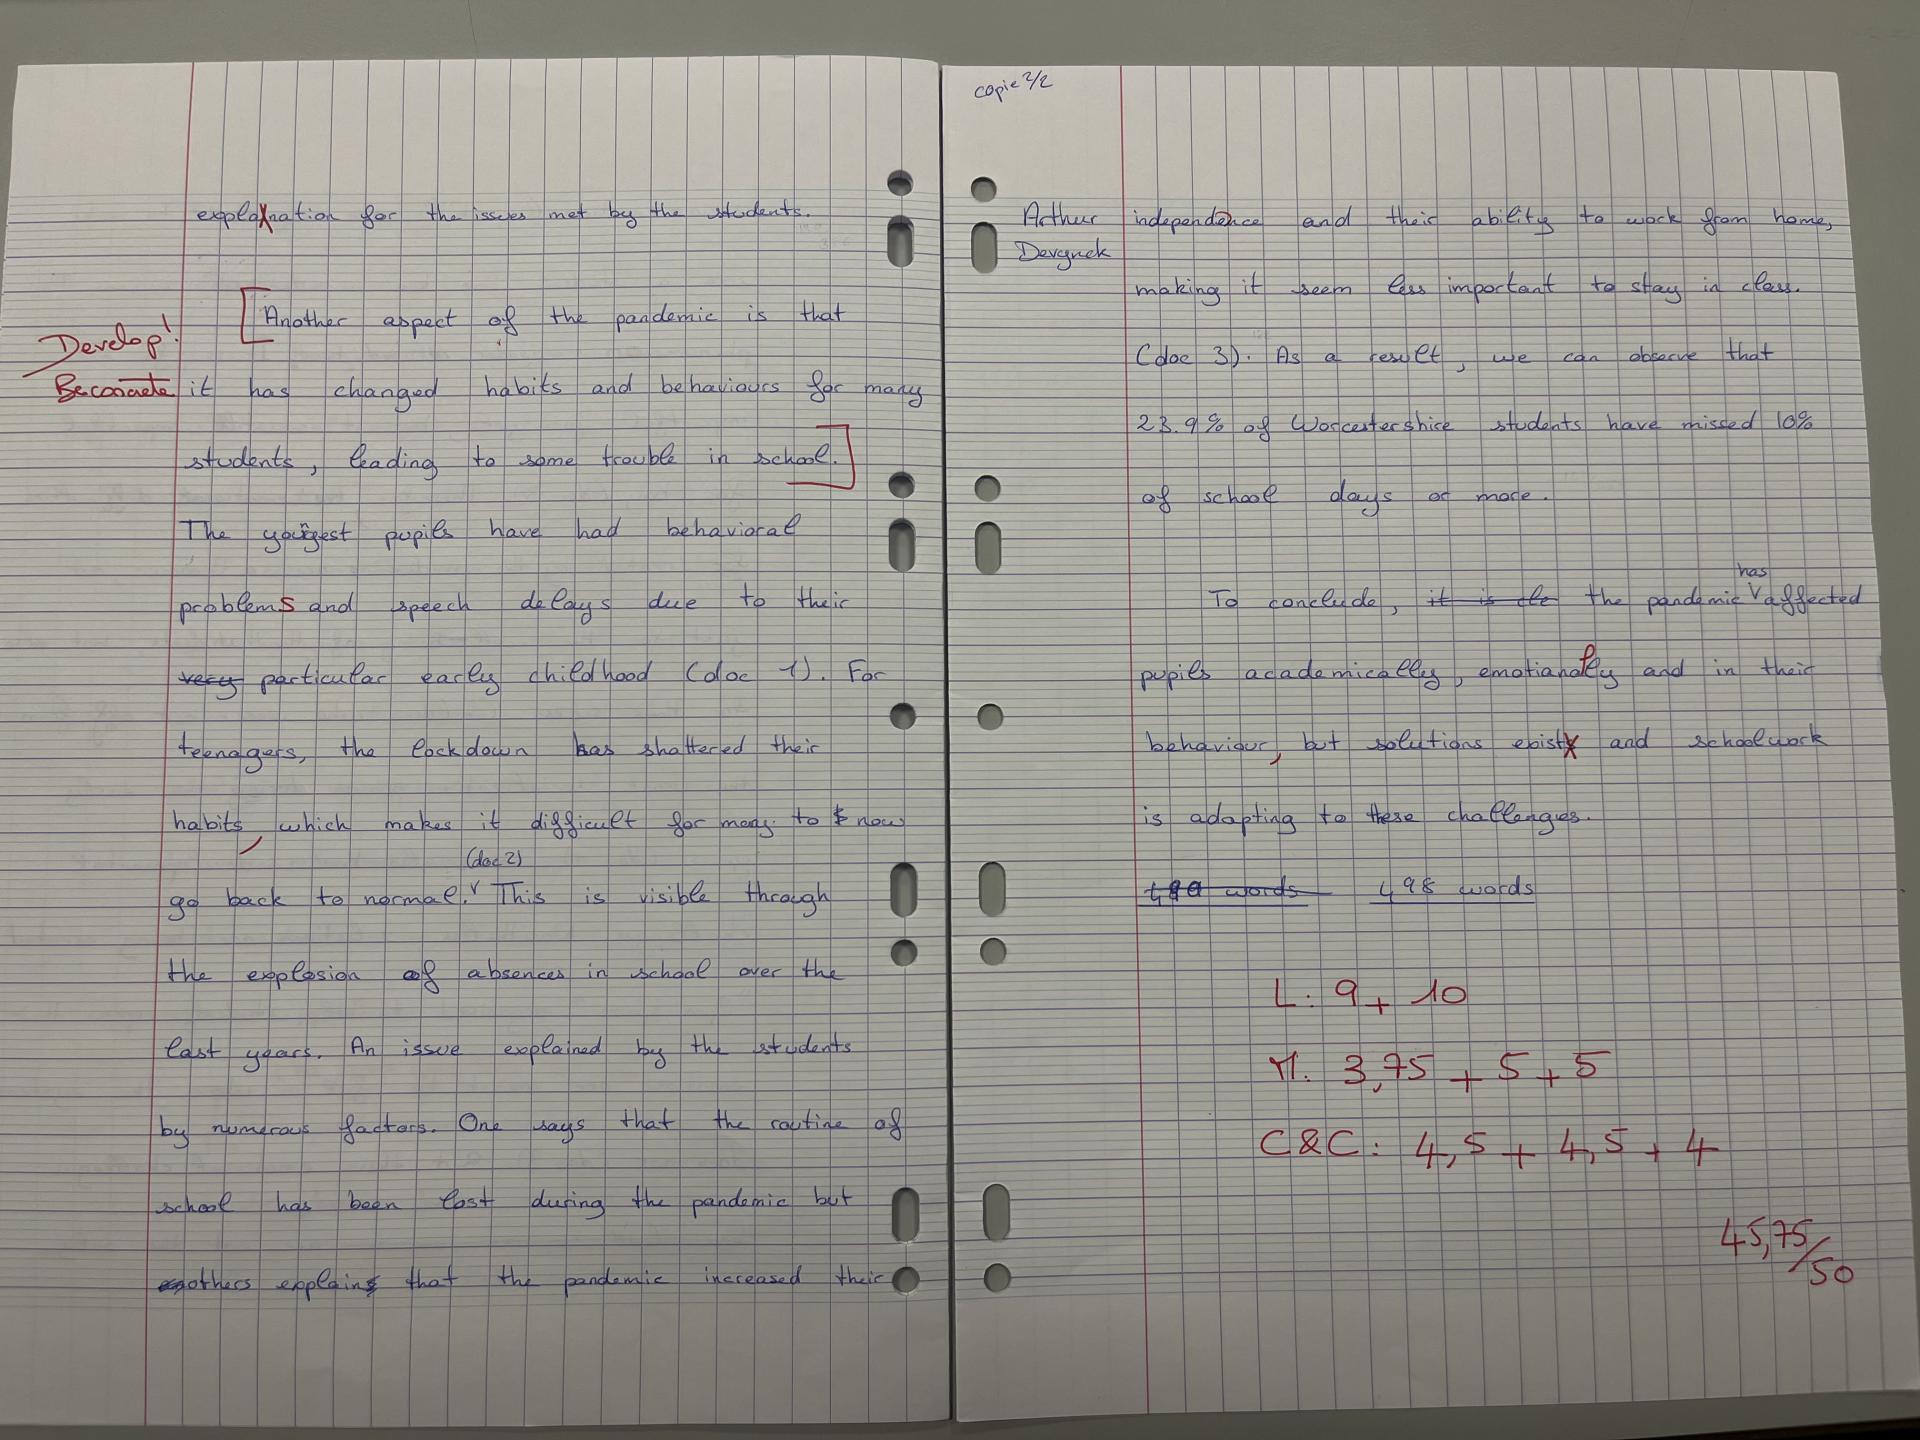 explaination for the issues met by the students.
[Another aspect of the pandemic is that
Develop!
Be concrete
it has changed habits and behaviours for many
students, leading to some trouble in school.]
The youngest pupils have had behavioral
problems and speech delays due to their
very particular early childhood (doc 1). For
teenagers, the lockdown has shattered their
habits, which makes it difficult for many to now
(doc 2)
go back to normal. This is visible through
the explosion of absences in school over the
last years. An issue explained by the students
by numerous factors. One says that the routine of
school has been lost during the pandemic but
others explains that the pandemic increased their
copie 2/2
Arthur
Devynck
independence and their ability to work from home,
making it seem less important to stay in class.
(doc 3). As a result, we can observe that
23.9% of Worcestershire students have missed 10%
of school days or more.
has
To conclude, it is cle the pandemic affected
pupils academically, emotionally and in their
behaviour, but solutions exist and schoolwork
is adapting to these challenges.
499 words 498 words
L: 9 + 10
M: 3,75 + 5 + 5
C&C: 4,5 + 4,5 + 4
45,75/50